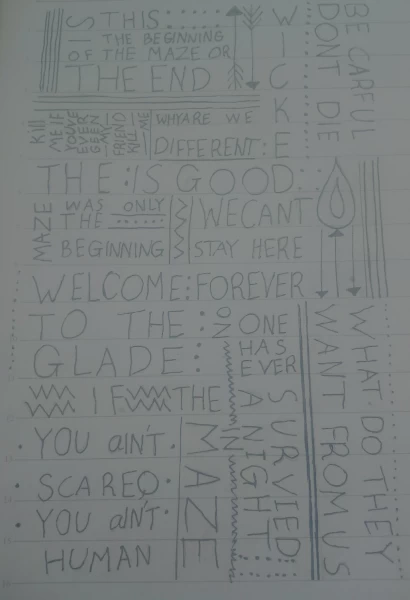 IS THIS
THE BEGINNING
OF THE MAZE OR
THE END
WICKE
BE CAREFUL
DONT DIE
Kill
ME IF
YOU'VE
EVER
BEEN
MY
FRIEND
KILL
ME
WHY ARE WE
DIFFERENT:
THE :IS GOOD
MAZE
WAS ONLY
THE
BEGINNING
WE CANT
STAY HERE
WELCOME: FOREVER
TO THE
GLADE
NO ONE
HAS
EVER
SURVIED
A NIGHT
IN THE
MAZE
IF
YOU aiN'T
SCARED
YOU aiN'T
HUMAN
WHAT DO THEY
WANT FROM US